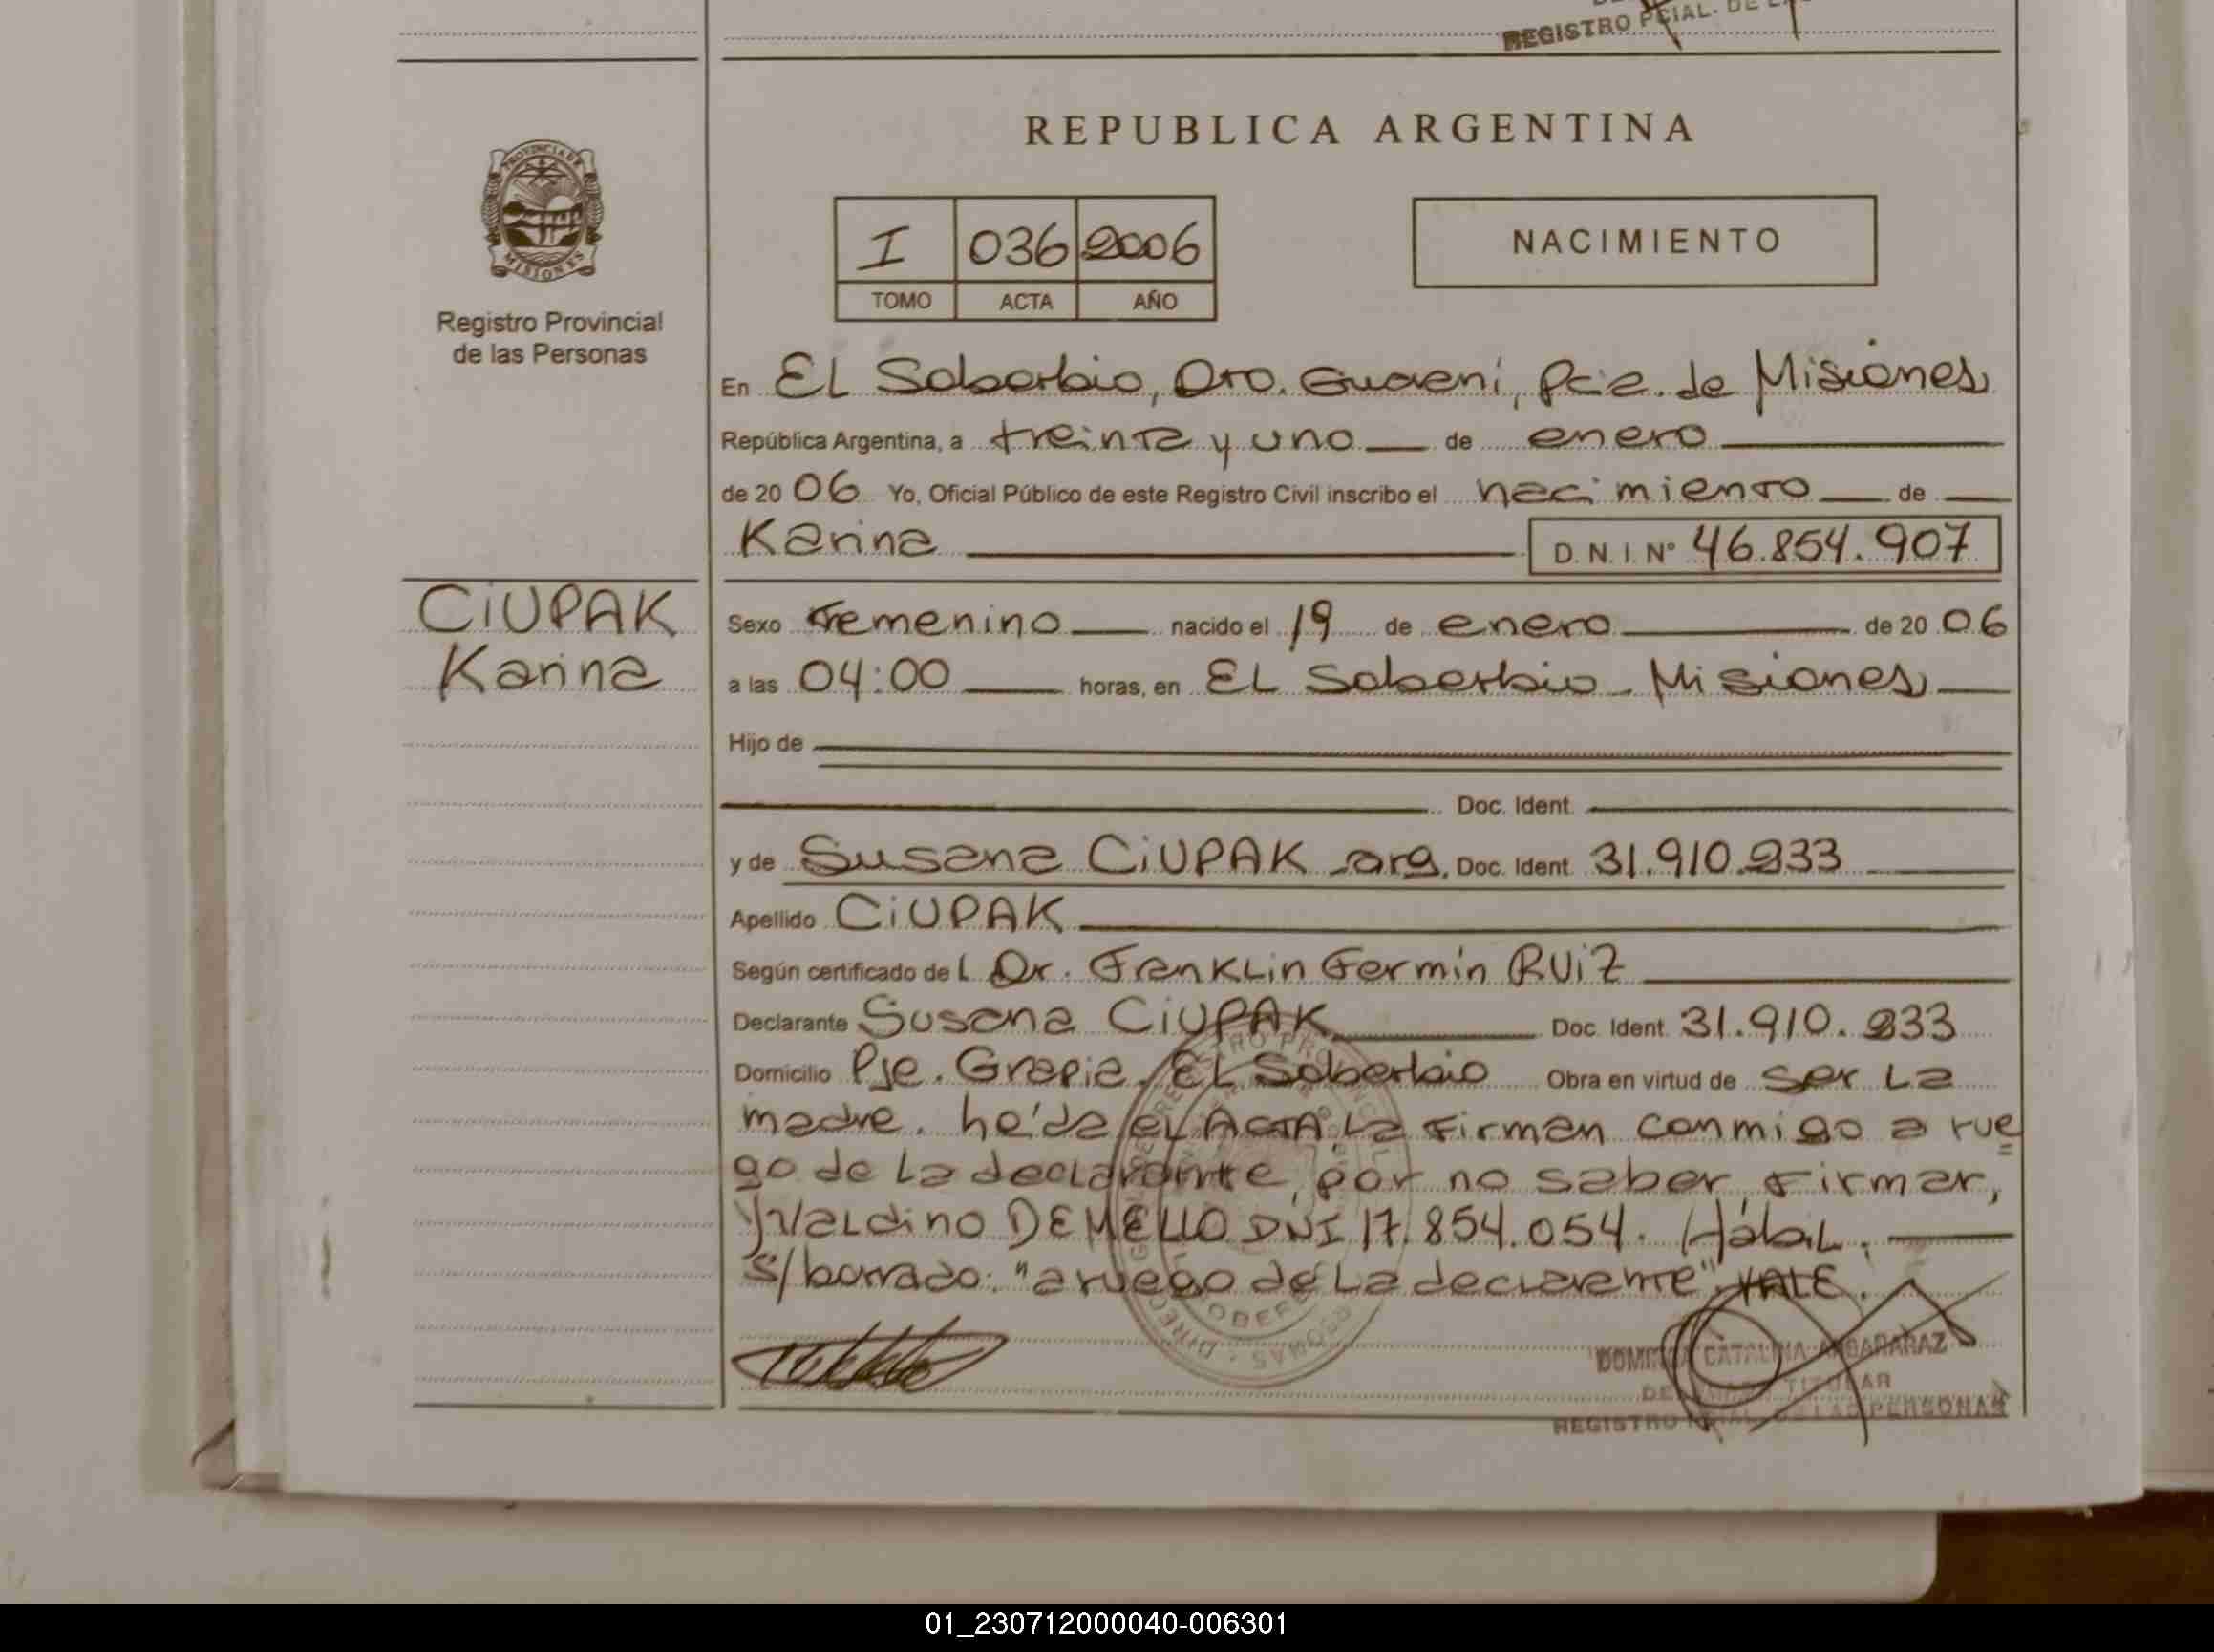 REGISTRO PCIAL. DE
REPUBLICA ARGENTINA
PROVINCIA DE
MISIONES
Registro Provincial
de las Personas
I 036 2006
TOMO ACTA AÑO
NACIMIENTO
En EL Soberbio, Dto. Guarani, Pcia. de Misiones
República Argentina, a treinta y uno de enero
de 2006 Yo, Oficial Público de este Registro Civil inscribo el nacimiento de
Karina D.N.I. Nº 46.854.907
CiUPAK
Karina
Sexo Femenino nacido el 19 de enero de 2006
a las 04:00 horas, en EL Soberbio - Misiones
Hijo de
Doc. Ident.
y de Susana CiUPAK - arg. Doc. Ident. 31.910.233
Apellido CiUPAK
Según certificado del Dr. Franklin Fermin RUiZ
Declarante Susana CiUPAK Doc. Ident. 31.910.233
Domicilio Pje. Grapia, EL Soberbio Obra en virtud de ser La
madre. heida el ACTA, La Firman conmigo a rue
go de La declarante, por no saber Firmar,
Ivaldino DEMELLO DNI 17.854.054. Hábil.
s/borrado: "a ruego de La declarante" VALE.
CATALINA
TITULAR
REGISTRO PCIAL. DE LAS PERSONAS
01_230712000040-006301